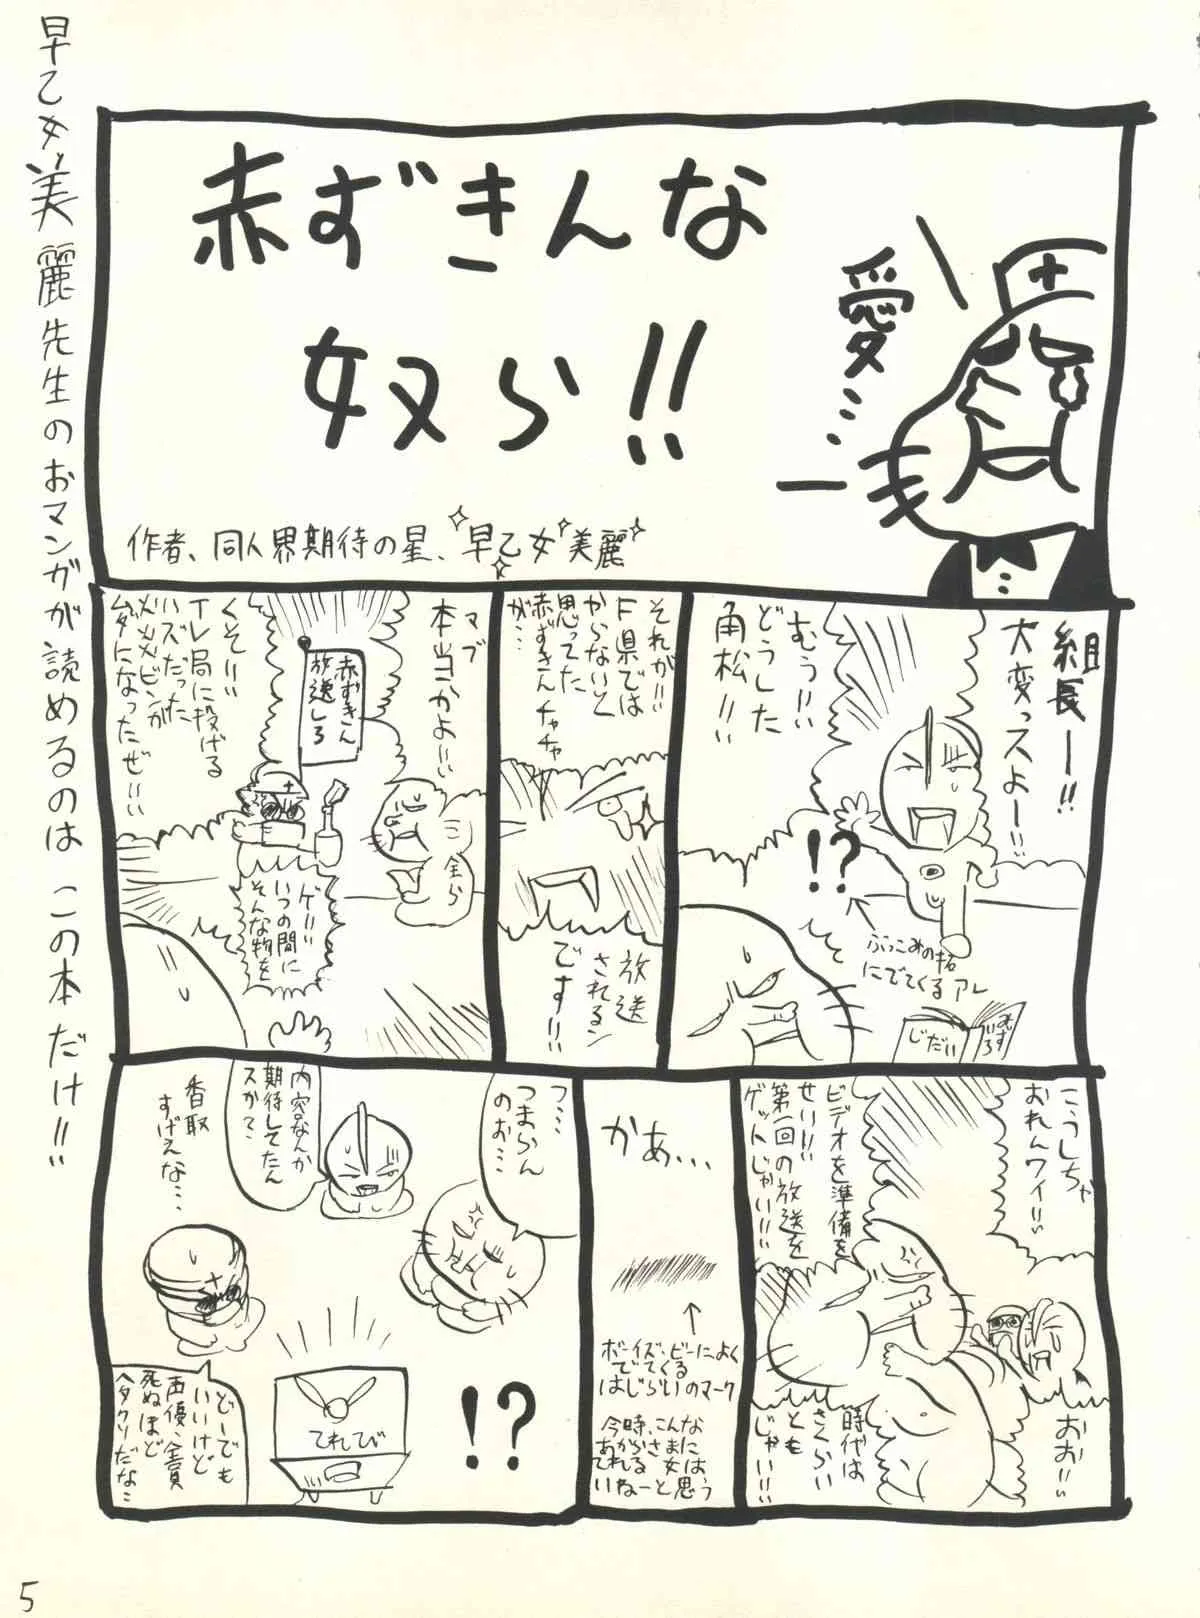 早乙女美麗先生のおマンガが読めるのはこの本だけ!!
赤ずきんな
奴ら!!
愛…
作者、同人界期待の星、早乙女美麗
組長ー!!
大変っスよー!!
むう!!
どうした
角松!!
!?
ぶっこみの拓
にでてくるアレ
むすいろ
じだい
それが!!
F県では
やらないと
思ってた
赤ずきんチャチャ
が…
放送
されるン
です!!
マブ
本当かよ!!
赤ずきん
放送しろ
くそ!!
TV局に投げる
はズだった
メメメビンが
ムダになったぜ!!
ゲ!!
いつの間に
そんな物を
金ら
こうしちゃ
おれんワイ!!
ビデオを準備を
せい!!
第一回の放送を
ゲットじゃい!!
おお!!
時代は
さくらい
とも
じゃい!!
かあ…
↑
ボーイズ・ビーによく
でてくる
はじらいのマーク
今時、こんなに
あからさまに
てれる女は
いねーと思う
フ…
つまらん
のお…
内容なんか
期待してたん
スか?…
香取
すげえな…
てれてび
!?
どーでも
いいけど
声優、全員
死ぬほど
ヘタクソだな…
5